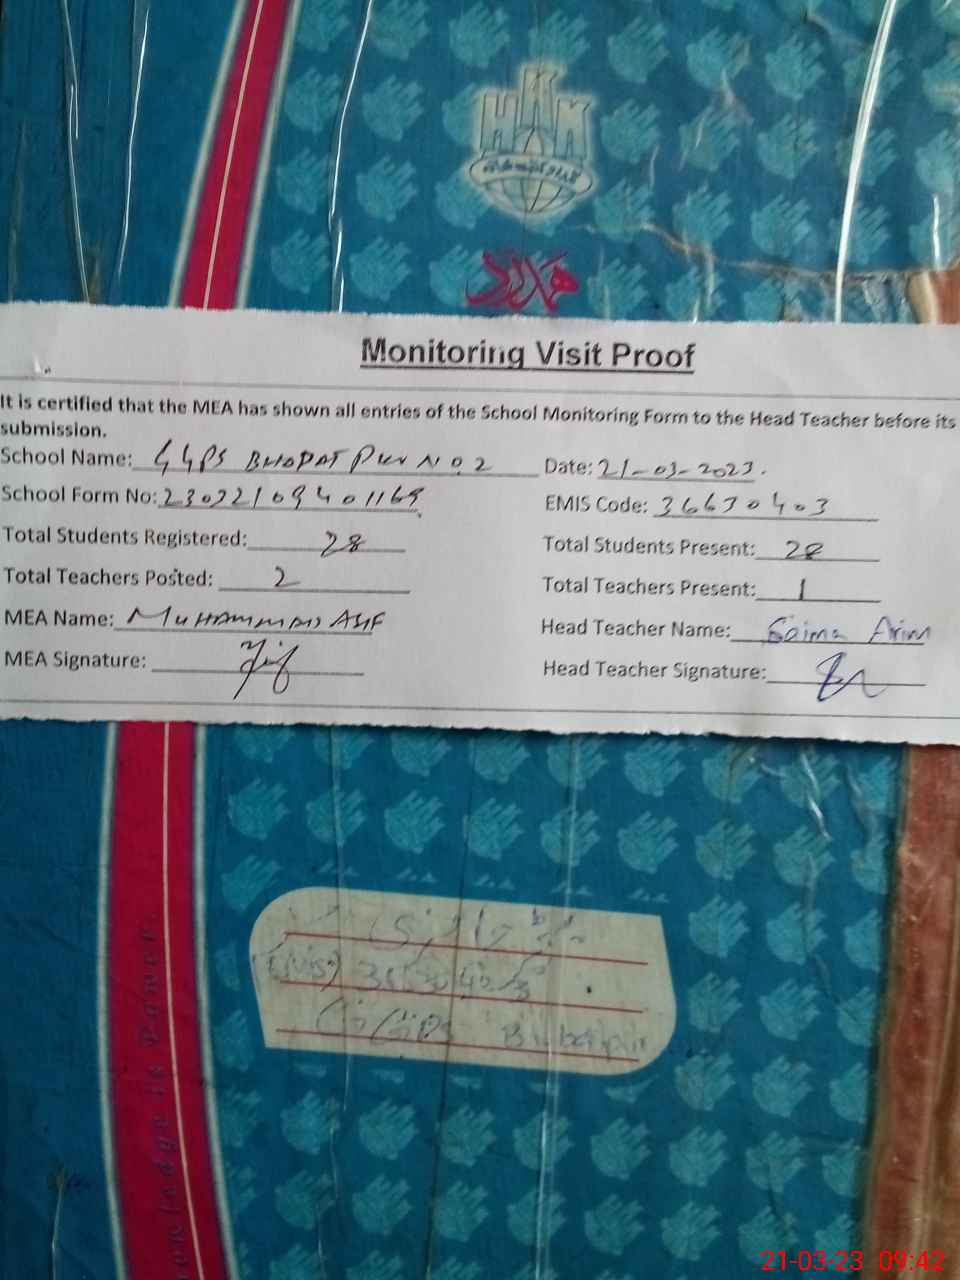 HKK
ہمدرد
Monitoring Visit Proof
It is certified that the MEA has shown all entries of the School Monitoring Form to the Head Teacher before its
submission.
School Name: GGPS BHOPAT PUR NO. 2 Date: 21-03-2023.
School Form No: EMIS Code: 36630403
Total Students Registered: 28 Total Students Present: 28
Total Teachers Posted: 2 Total Teachers Present: 1
MEA Name: MUHAMMAD ASIF Head Teacher Name: Saima
MEA Signature: Head Teacher Signature:
GGPS
Knowledge is Power.
21-03-23 09:42